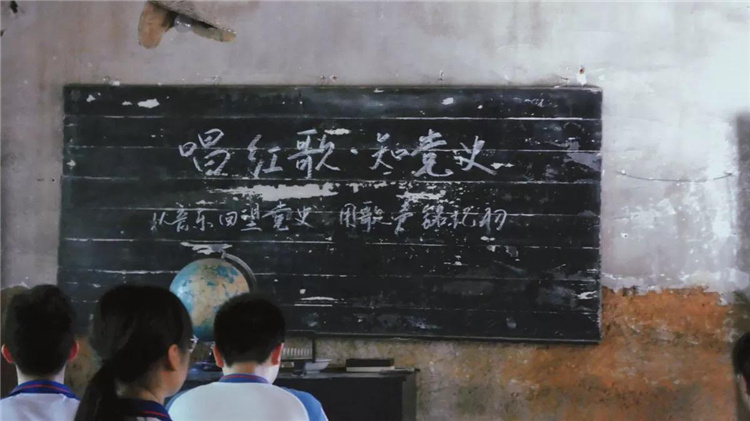 唱红歌·知党史
从音乐回望党史 用歌声铭记初